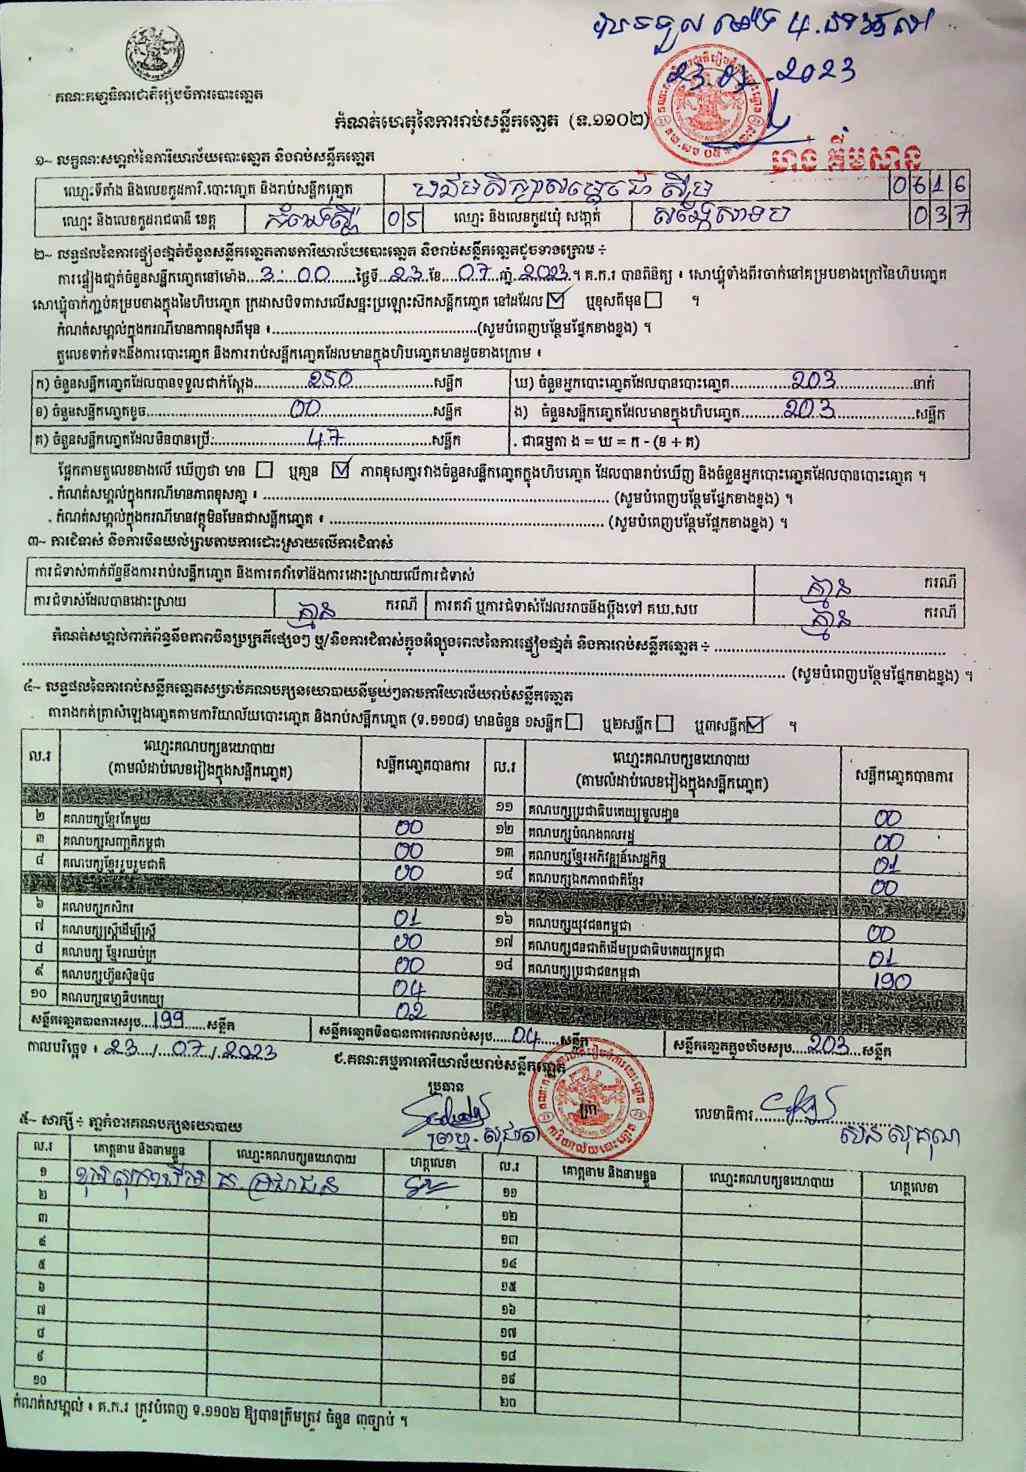 គណៈកម្មាធិការជាតិរៀបចំការបោះឆ្នោត
23.07.2023
កំណត់ហេតុនៃការរាប់សន្លឹកឆ្នោត (ទ.១១០២)
១~ លក្ខណៈសម្គាល់នៃការិយាល័យបោះឆ្នោត និងរាប់សន្លឹកឆ្នោត
ឈ្មោះទីតាំង និងលេខកូដការិ.បោះឆ្នោត និងរាប់សន្លឹកឆ្នោត 0616
ឈ្មោះ និងលេខកូដរាជធានី ខេត្ត កំពង់ស្ពឺ 05 ឈ្មោះ និងលេខកូដឃុំ សង្កាត់ 037
២~ លទ្ធផលនៃការផ្ទៀងផ្ទាត់ចំនួនសន្លឹកឆ្នោតតាមការិយាល័យបោះឆ្នោត និងរាប់សន្លឹកឆ្នោតដូចខាងក្រោម ÷
ការផ្ទៀងផ្ទាត់ចំនួនសន្លឹកឆ្នោតនៅម៉ោង 3:00 ថ្ងៃទី 23 ខែ 07 ឆ្នាំ 2023 ។ គ.ក.រ បានពិនិត្យ ៖ សោឃ្លុំទាំងពីរចាក់នៅគម្របខាងក្រៅនៃហិបឆ្នោត
សោឃ្លុំចាក់ភ្ជាប់គម្របខាងក្នុងនៃហិបឆ្នោត ក្រដាសបិទពាសលើសន្ទះប្រឡោះសៀតសន្លឹកឆ្នោត នៅដដែល ☑ ឬខុសពីមុន ☐ ។
កំណត់សម្គាល់ក្នុងករណីមានភាពខុសពីមុន ៖ (សូមបំពេញបន្ថែមផ្នែកខាងខ្នង) ។
តួលេខទាក់ទងនឹងការបោះឆ្នោត និងការរាប់សន្លឹកឆ្នោតដែលមានក្នុងហិបឆ្នោតមានដូចខាងក្រោម ៖
ក) ចំនួនសន្លឹកឆ្នោតដែលបានទទួលជាក់ស្តែង 250 សន្លឹក ឃ) ចំនួនអ្នកបោះឆ្នោតដែលបានបោះឆ្នោត 203 នាក់
ខ) ចំនួនសន្លឹកឆ្នោតខូច 00 សន្លឹក ង) ចំនួនសន្លឹកឆ្នោតដែលមានក្នុងហិបឆ្នោត 203 សន្លឹក
គ) ចំនួនសន្លឹកឆ្នោតដែលមិនបានប្រើ 47 សន្លឹក . ជាធម្មតា ង = ឃ = ក - (ខ + គ)
ផ្អែកតាមតួលេខខាងលើ ឃើញថា មាន ☐ ឬគ្មាន ☑ ភាពខុសគ្នារវាងចំនួនសន្លឹកឆ្នោតក្នុងហិបឆ្នោត ដែលបានរាប់ឃើញ និងចំនួនអ្នកបោះឆ្នោតដែលបានបោះឆ្នោត ។
. កំណត់សម្គាល់ក្នុងករណីមានភាពខុសគ្នា ៖ (សូមបំពេញបន្ថែមផ្នែកខាងខ្នង) ។
. កំណត់សម្គាល់ក្នុងករណីមានវត្ថុមិនមែនជាសន្លឹកឆ្នោត ៖ (សូមបំពេញបន្ថែមផ្នែកខាងខ្នង) ។
៣~ ការជំទាស់ និងការមិនយល់ព្រមតាមការដោះស្រាយលើការជំទាស់
ការជំទាស់ពាក់ព័ន្ធនឹងការរាប់សន្លឹកឆ្នោត និងការតវ៉ាទៅនឹងការដោះស្រាយលើការជំទាស់ គ្មាន ករណី
ការជំទាស់ដែលបានដោះស្រាយ គ្មាន ករណី ការតវ៉ា ឬការជំទាស់ដែលអាចនឹងប្តឹងទៅ គឃ.សប គ្មាន ករណី
កំណត់សម្គាល់ពាក់ព័ន្ធនឹងភាពមិនប្រក្រតីផ្សេងៗ ឬ/និងការជំទាស់ក្នុងអំឡុងពេលនៃការផ្ទៀងផ្ទាត់ និងការរាប់សន្លឹកឆ្នោត ÷
(សូមបំពេញបន្ថែមផ្នែកខាងខ្នង) ។
៤~ លទ្ធផលនៃការរាប់សន្លឹកឆ្នោតសម្រាប់គណបក្សនយោបាយនីមួយៗតាមការិយាល័យរាប់សន្លឹកឆ្នោត
តារាងកត់ត្រាសំឡេងឆ្នោតតាមការិយាល័យបោះឆ្នោត និងរាប់សន្លឹកឆ្នោត (ទ.១១០៨) មានចំនួន ១សន្លឹក ☐ ឬ២សន្លឹក ☐ ឬ៣សន្លឹក ☑ ។
ល.រ ឈ្មោះគណបក្សនយោបាយ (តាមលំដាប់លេខរៀងក្នុងសន្លឹកឆ្នោត) សន្លឹកឆ្នោតបានការ ល.រ ឈ្មោះគណបក្សនយោបាយ (តាមលំដាប់លេខរៀងក្នុងសន្លឹកឆ្នោត) សន្លឹកឆ្នោតបានការ
១១ គណបក្សប្រជាធិបតេយ្យមូលដ្ឋាន 00
២ គណបក្សខ្មែរតែមួយ 00 ១២ គណបក្សបំណងពលរដ្ឋ 00
៣ គណបក្សសញ្ជាតិកម្ពុជា 00 ១៣ គណបក្សខ្មែរអភិវឌ្ឍន៍សេដ្ឋកិច្ច 01
៤ គណបក្សខ្មែររួបរួមជាតិ 00 ១៤ គណបក្សឯកភាពជាតិខ្មែរ 00
៦ គណបក្សកសិករ 01 ១៦ គណបក្សយុវជនកម្ពុជា 00
៧ គណបក្សស្ត្រីដើម្បីស្ត្រី 00 ១៧ គណបក្សជនជាតិដើមប្រជាធិបតេយ្យកម្ពុជា 01
៨ គណបក្ស ខ្មែរឈប់ក្រ 00 ១៨ គណបក្សប្រជាជនកម្ពុជា 190
៩ គណបក្សហ៊្វុនស៊ិនប៉ិច 04
១០ គណបក្សធម្មាធិបតេយ្យ 02
សន្លឹកឆ្នោតបានការសរុប 199 សន្លឹក សន្លឹកឆ្នោតមិនបានការពេលរាប់សរុប 04 សន្លឹក សន្លឹកឆ្នោតក្នុងហិបសរុប 203 សន្លឹក
កាលបរិច្ឆេទ ៖ 23/07/2023 ជ.គណៈកម្មការការិយាល័យរាប់សន្លឹកឆ្នោត
ប្រធាន
លេខាធិការ
៥~ សាក្សី ÷ ភ្នាក់ងារគណបក្សនយោបាយ
ល.រ គោត្តនាម និងនាមខ្លួន ឈ្មោះគណបក្សនយោបាយ ហត្ថលេខា ល.រ គោត្តនាម និងនាមខ្លួន ឈ្មោះគណបក្សនយោបាយ ហត្ថលេខា
១ គ.ប្រជាជន ១១
២ ១២
៣ ១៣
៤ ១៤
៥ ១៥
៦ ១៦
៧ ១៧
៨ ១៨
៩ ១៩
១០ ២០
កំណត់សម្គាល់ ៖ គ.ក.រ ត្រូវបំពេញ ទ.១១០២ ឱ្យបានត្រឹមត្រូវ ចំនួន ៣ច្បាប់ ។